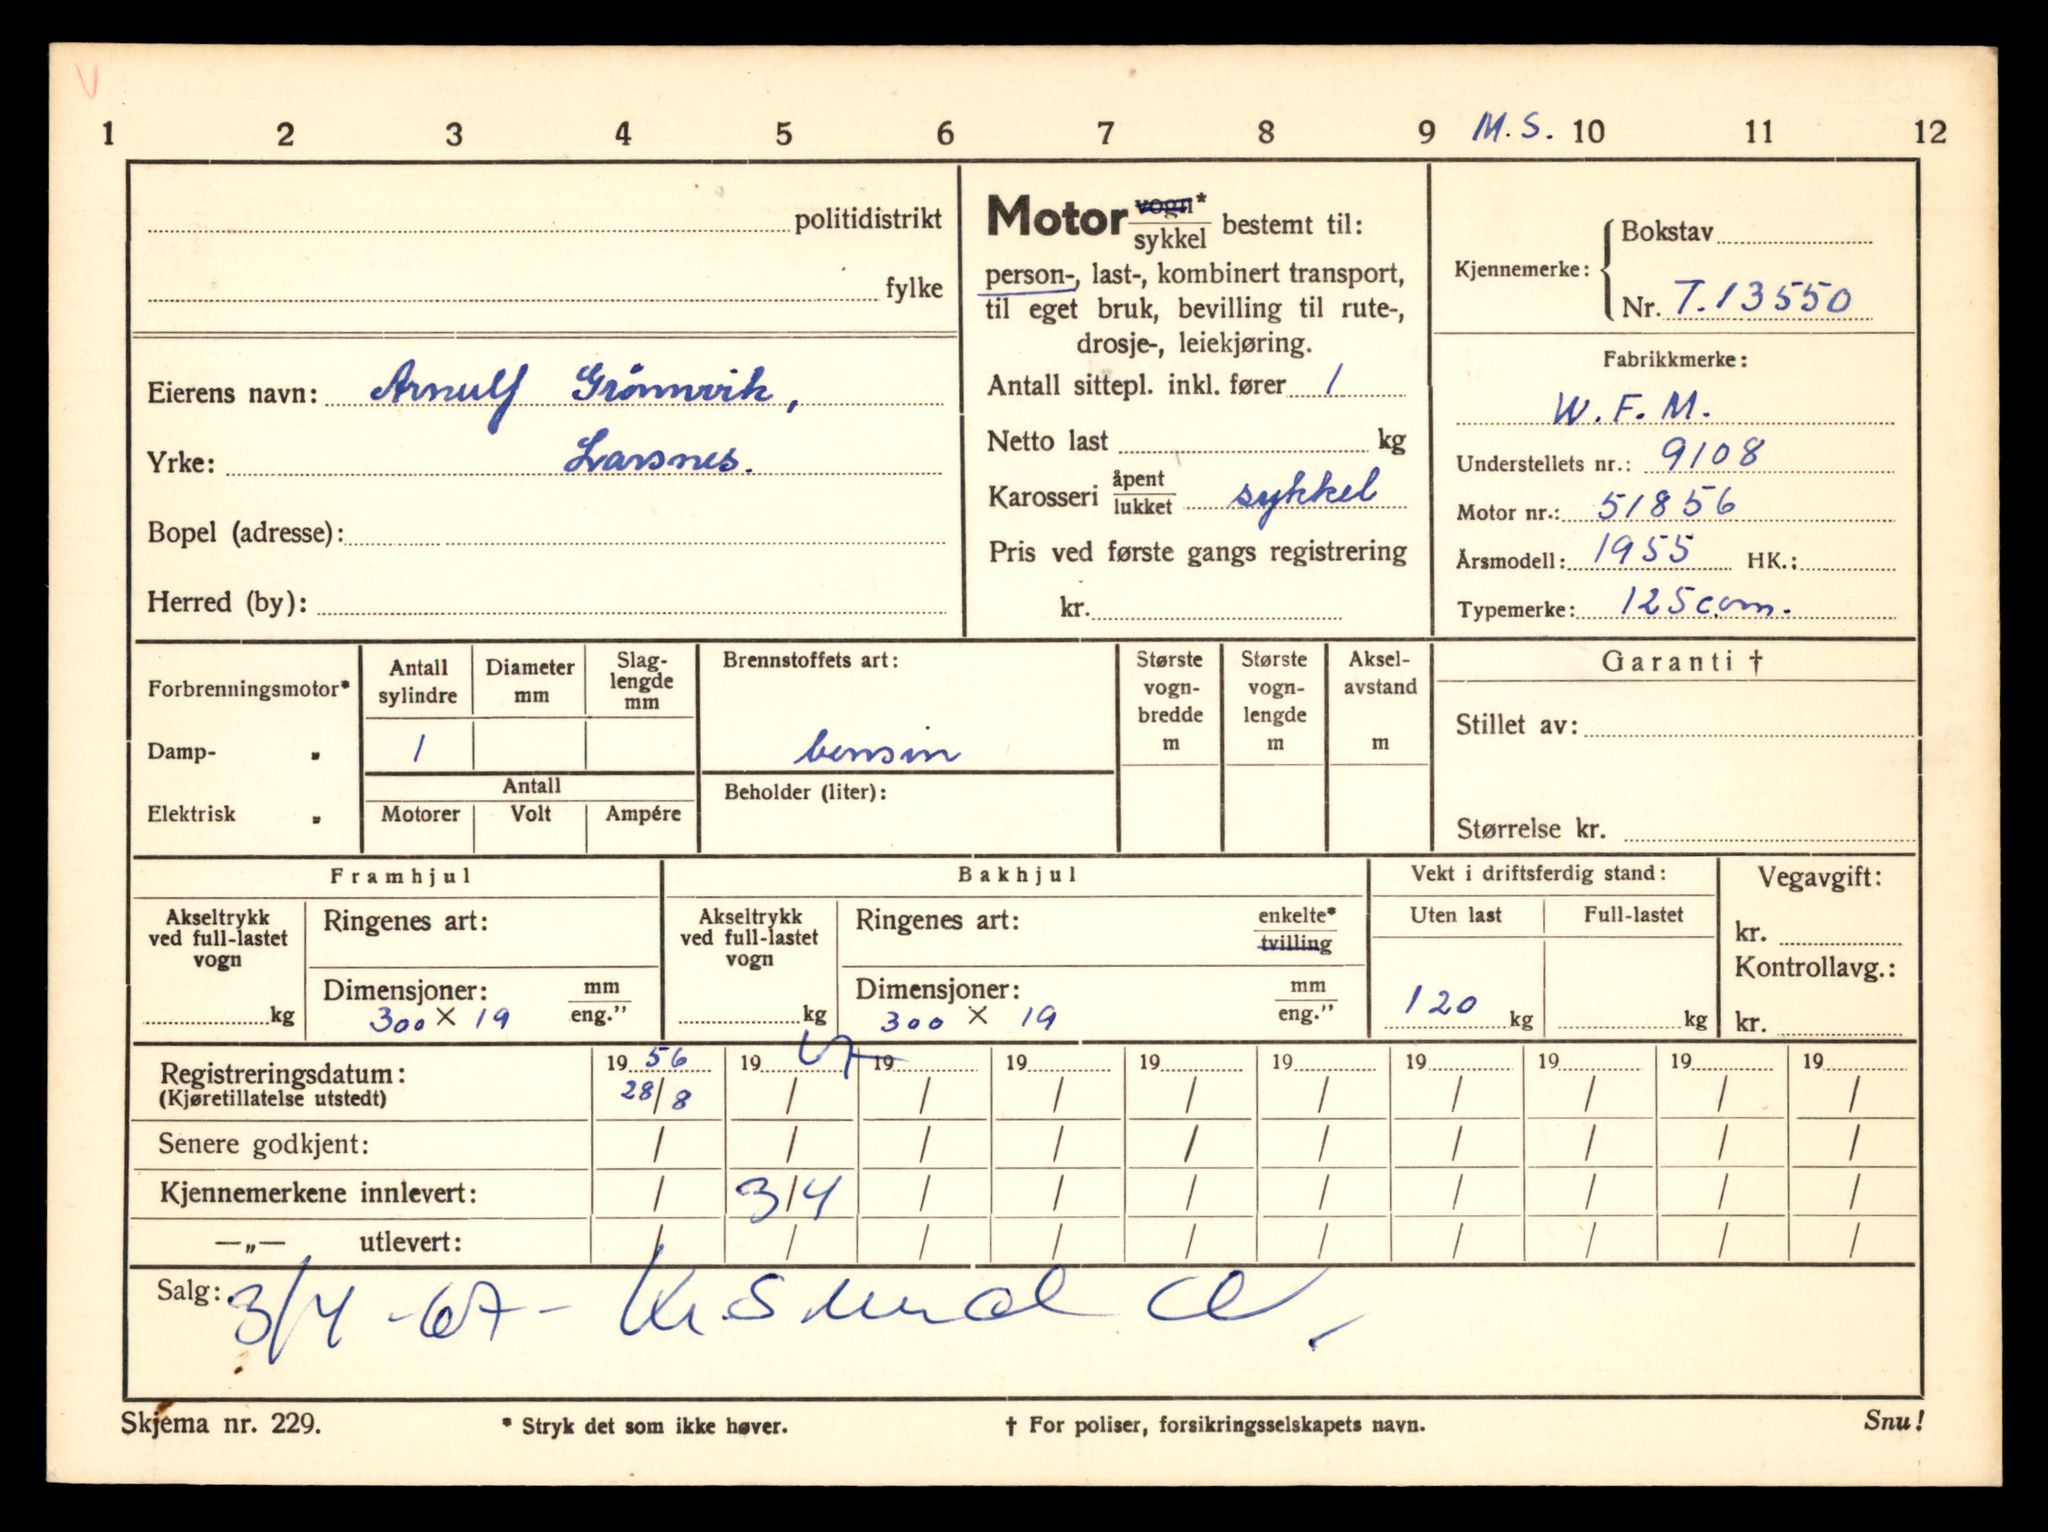 1 2 3 4 5 6 7 8 9 M.S. 10 11 12
politidistrikt
fylke
Eierens navn: Arnulf Grönnvik,
Yrke: Larsnes.
Bopel (adresse):
Herred (by):
Motor vogn* / sykkel bestemt til:
person-, last-, kombinert transport,
til eget bruk, bevilling til rute-,
drosje-, leiekjøring.
Antall sittepl. inkl. fører 1
Netto last kg
Karosseri åpent / lukket sykkel
Pris ved første gangs registrering
kr.
Kjennemerke: Bokstav
Nr. T.13550
Fabrikkmerke:
W.F.M.
Understellets nr.: 9108
Motor nr.: 51856
Årsmodell: 1955 HK.:
Typemerke: 125 ccm.
Forbrenningsmotor*
Damp- „
Elektrisk „
Antall sylindre
Diameter mm
Slag-
lengde
mm
1
Antall
Motorer Volt Ampére
Brennstoffets art:
bensin
Beholder (liter):
Største
vogn-
bredde
m
Største
vogn-
lengde
m
Aksel-
avstand
m
Garanti †
Stillet av:
Størrelse kr.
Framhjul
Akseltrykk
ved full-lastet
vogn
kg
Ringenes art:
Dimensjoner: mm / eng.”
300 × 19
Bakhjul
Akseltrykk
ved full-lastet
vogn
kg
Ringenes art: enkelte* / tvilling
Dimensjoner: mm / eng.”
300 × 19
Vekt i driftsferdig stand:
Uten last Full-lastet
120 kg kg
Vegavgift:
kr.
Kontrollavg.:
kr.
Registreringsdatum: 19 56 19 67 19 19 19 19 19 19 19 19
(Kjøretillatelse utstedt) 28/8 / / / / / / / / /
Senere godkjent: / / / / / / / / / /
Kjennemerkene innlevert: / 3/4 / / / / / / / /
—„— utlevert: / / / / / / / / / /
Salg: 3/4 -67-
Skjema nr. 229. * Stryk det som ikke høver. † For poliser, forsikringsselskapets navn. Snu!